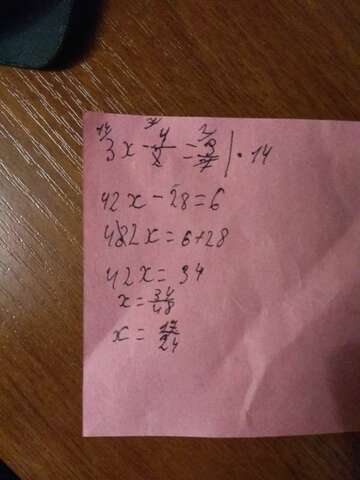 3x - 4/2 = 3/7 | · 14
42x - 28 = 6
42x = 6+28
42x = 34
x = 34/48
x = 17/24